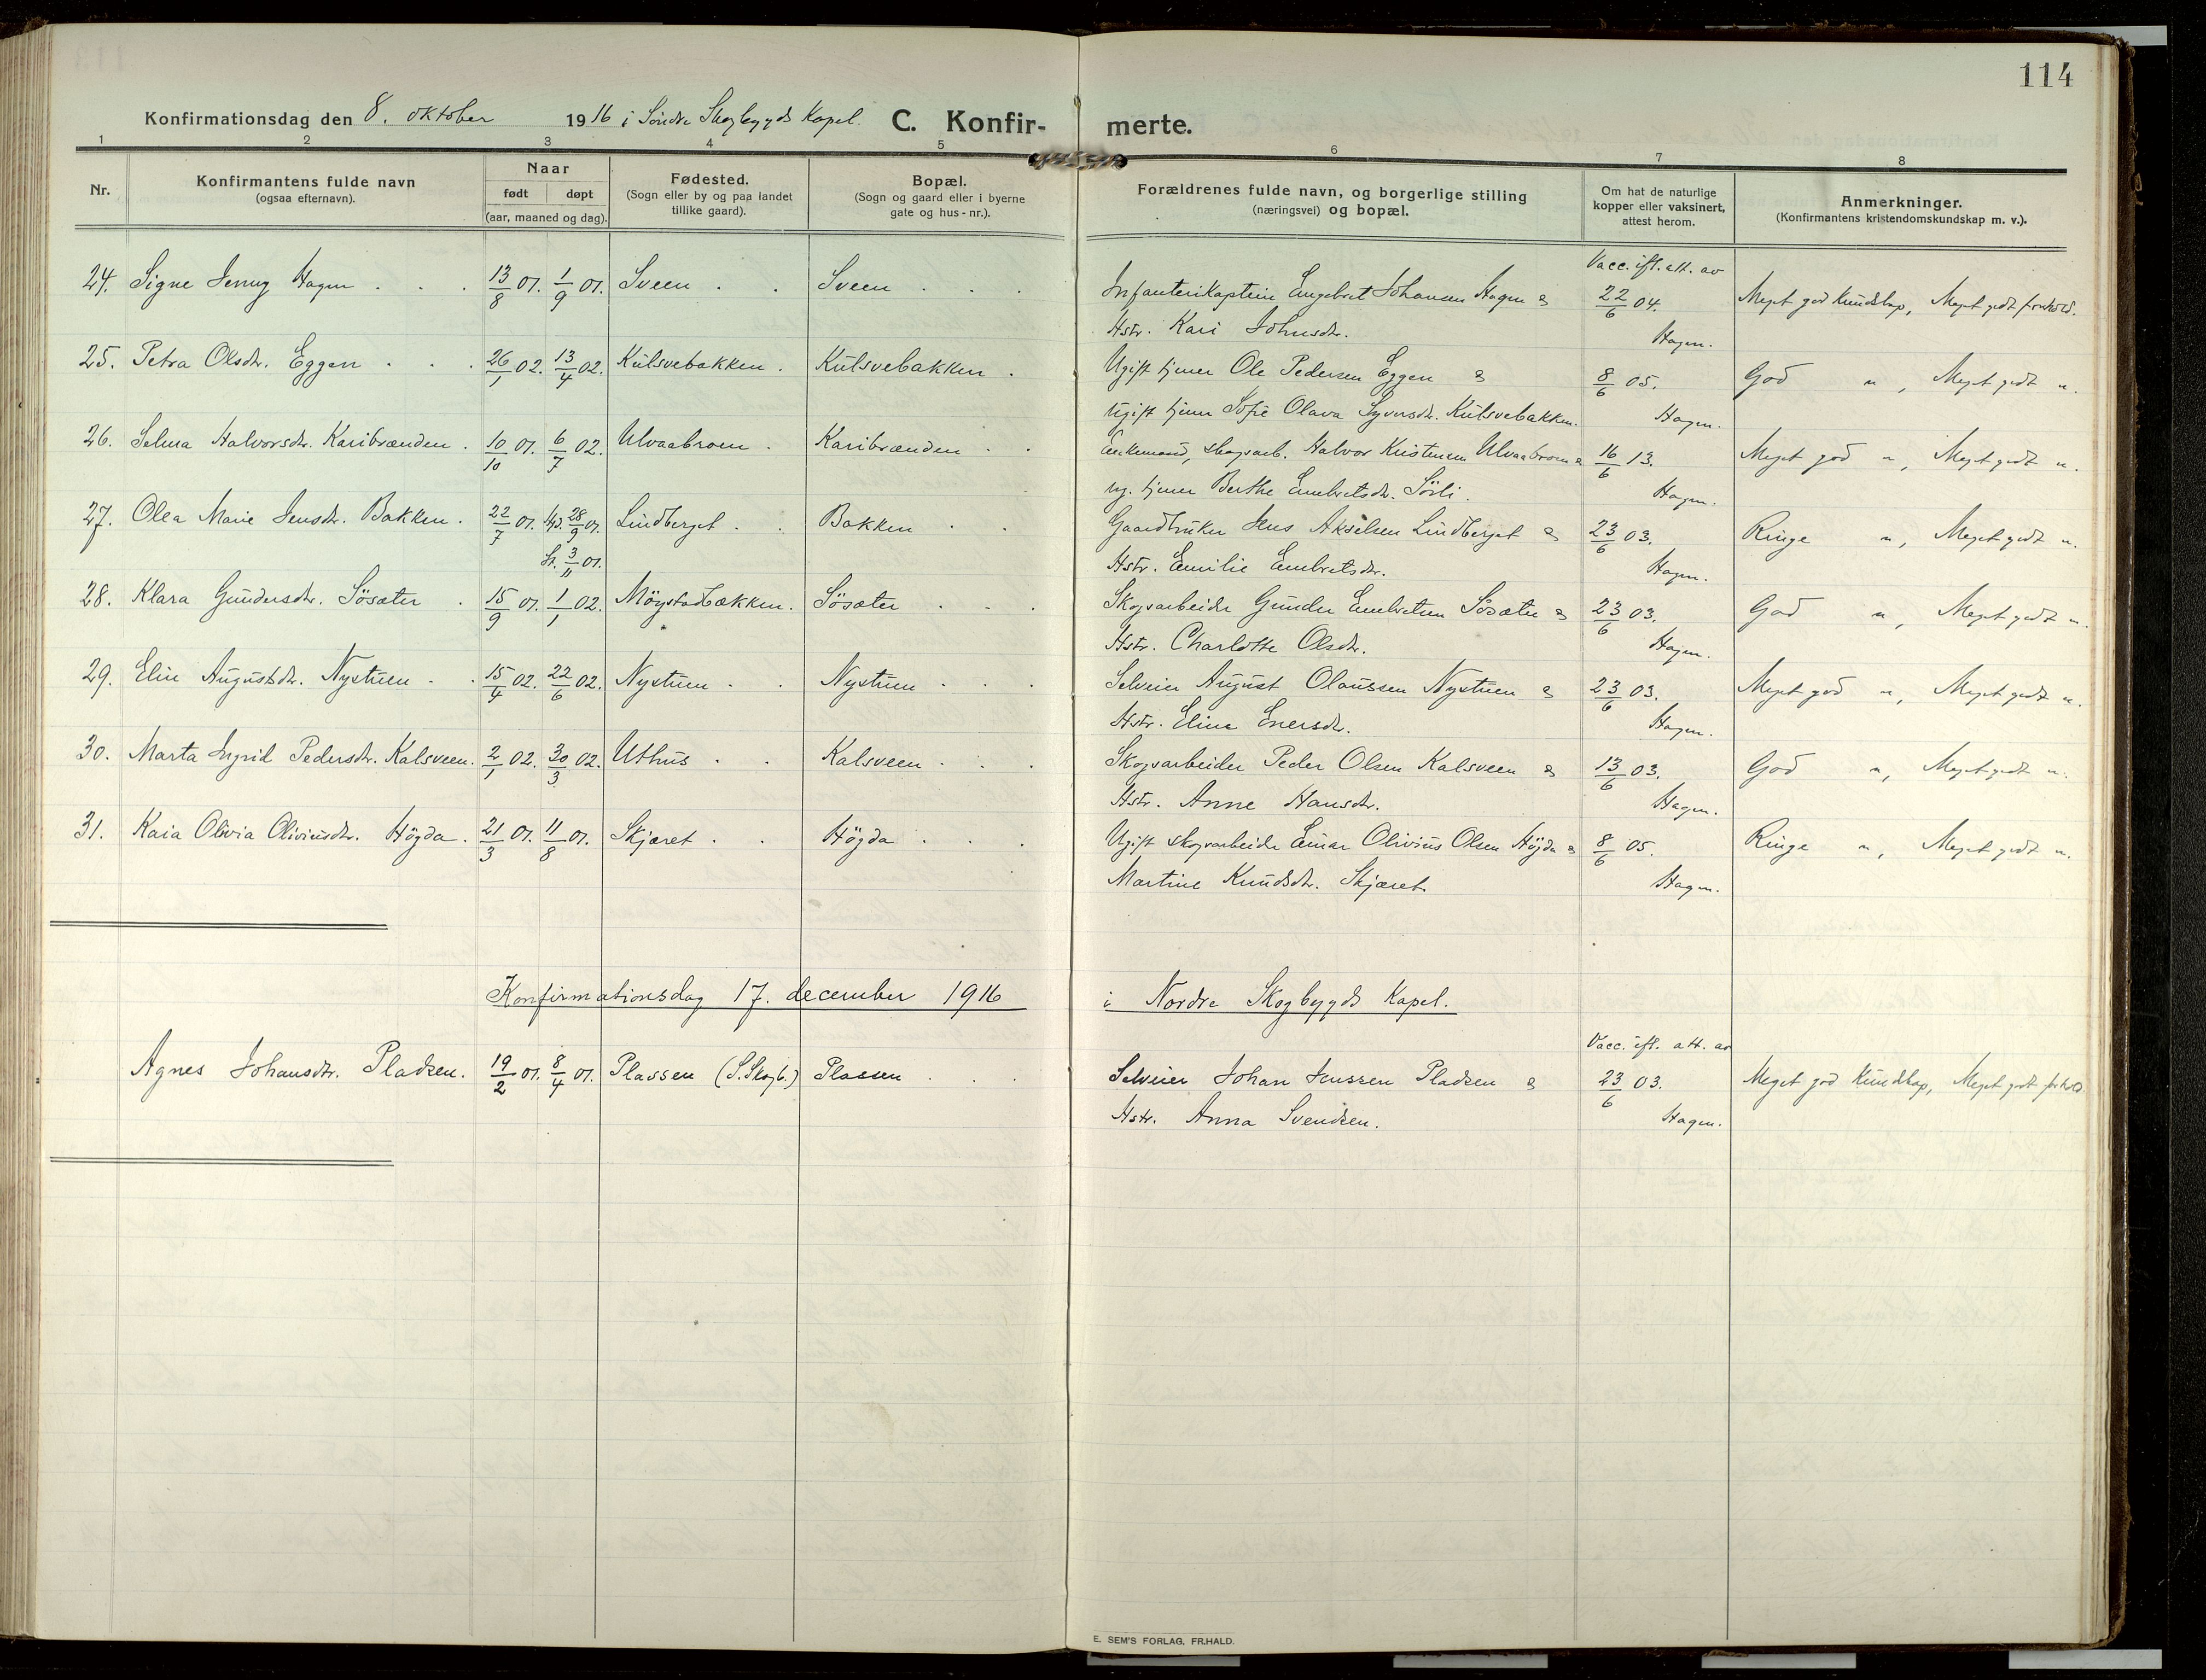 114
Konfirmationsdag den 8. oktober 1916 i Söndre Skogbygds Kapel. C. Konfirmerte.
1 2 3 4 5 6 7 8
Nr.
Konfirmantens fulde navn
(ogsaa efternavn).
Naar
født døpt
(aar, maaned og dag).
Fødested.
(Sogn eller by og paa landet
tillike gaard).
Bopæl.
(Sogn og gaard eller i byerne
gate og hus-nr.).
Forældrenes fulde navn, og borgerlige stilling
(næringsvei) og bopæl.
Om hat de naturlige
kopper eller vaksinert,
attest herom.
Anmerkninger.
(Konfirmantens kristendomskundskap m. v.).
Vacc. ifl. att. av
24. Signe Jenny Hagen 13/8 01. 1/9 01. Sveen Sveen Infanterikaptein Engebret Johansen Hagen & 22/6 04. Meget god kundskap, Meget godt forhold.
Hstr. Kari Johnsdtr. Hagen.
25. Petra Olsdtr. Eggen 26/1 02. 13/4 02. Kulsvebakken Kulsvebakken Ugift tjener Ole Pedersen Eggen & 8/6 05. God ", Meget godt ".
Ugift tjener Sofie Olava Syversdtr. Kulsvebakken. Hagen.
26. Selma Halvorsdtr. Karibrænden 10/10 01. 6/7 02. Ulvaabroen Karibrænden Enkemand, skogsarb. Halvor Kristensen Ulvaabroen & 16/6 13. Meget god ", Meget godt ".
ug. tjener Berthe Embretsdtr. Sörli. Hagen.
27. Olea Marie Jensdtr. Bakken 22/7 01. Hjd. 28/9 01. Lindberget Bakken Gaardbruker Jens Akselsen Lindberget & 23/6 03. Ringe ", Meget godt ".
St. 3/11 01. Hstr. Emilie Embretsdtr. Hagen.
28. Klara Gundersdtr. Sösæter 15/9 01. 1/1 02. Möystadbækken. Sösæter Skogsarbeider Gunder Embretsen Sösæter & 23/6 03. God ", Meget godt ".
Hstr. Charlotte Olsdtr. Hagen.
29. Elin Augustsdtr. Nystuen 15/4 02. 22/6 02. Nystuen Nystuen Selveier August Olaussen Nystuen & 23/6 03. Meget god ", Meget godt ".
Hstr. Elina Enersdtr. Hagen.
30. Marta Ingrid Pedersdtr. Kalsveen. 2/1 02. 30/3 02. Uthus Kalsveen Skogsarbeider Peder Olsen Kalsveen & 13/6 03. God ", Meget godt ".
Hstr. Anne Hansdtr. Hagen.
31. Kaia Olivia Oliviusdtr. Högda 21/3 01. 11/8 01. Skjæret Högda Ugift skogsarbeider Einar Olivius Olsen Högda & 8/6 05. Ringe ", Meget godt ".
Martine Knudsdtr. Skjæret. Hagen.
Konfirmationsdag 17. december 1916 i Nordre Skogbygds Kapel.
Vacc. ifl. att. av
Agnes Johansdtr. Pladsen. 19/2 01. 8/4 01. Plassen (S.Skogb.) Plassen Selveier Johan Jenssen Pladsen & 23/6 03. Meget god kundskap, Meget godt forhold
Hstr. Anna Svendsen. Hagen.
E. SEM'S FORLAG, FR.HALD.